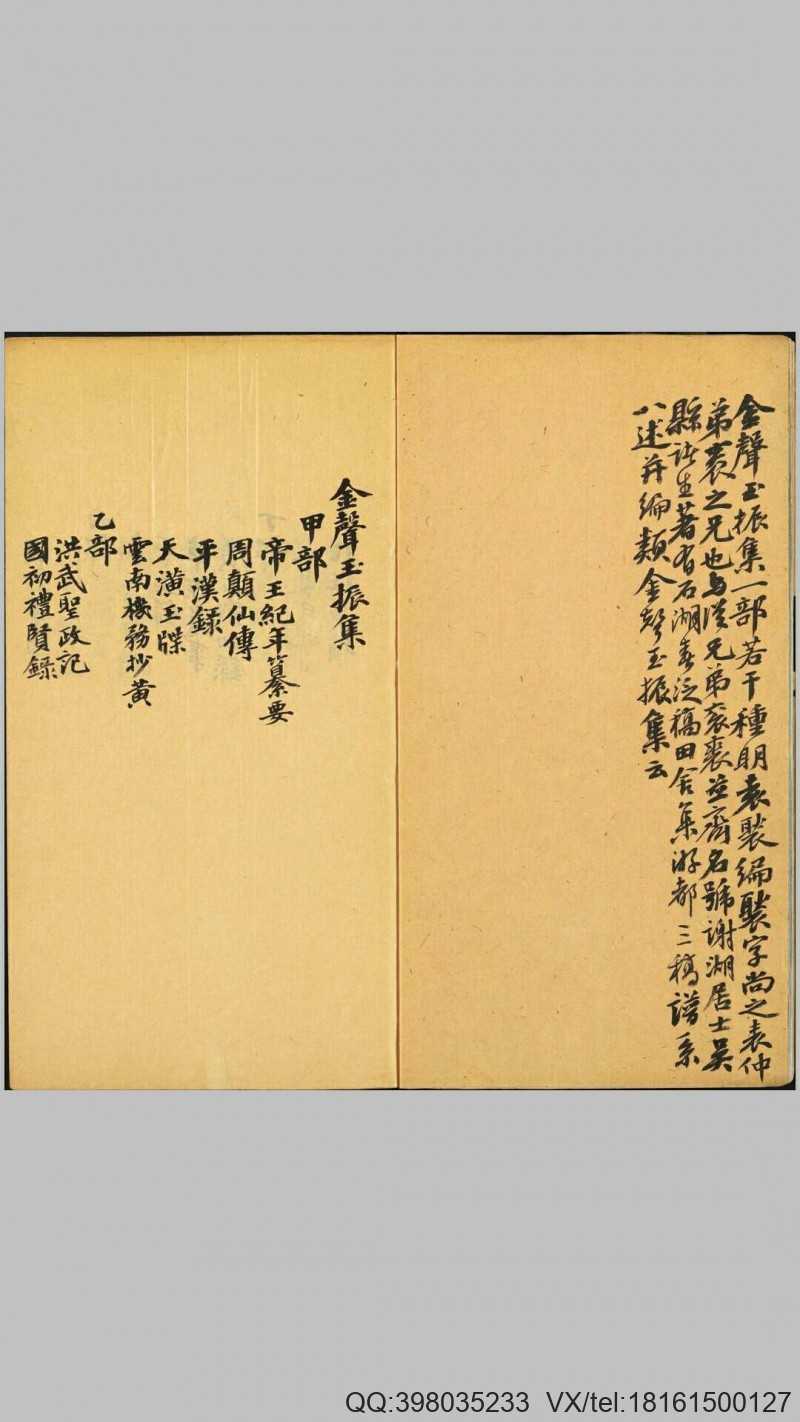 金聲玉振集一部若干種明袁褧編褧字尚之表仲
弟袠之兄也与從兄弟袞裘並齊名號謝湖居士吳
縣諸生著有石湖春泛稿田舍集游都三稿譜系
八述并編類金聲玉振集云
金聲玉振集
甲部
帝王紀年纂要
周顛仙傳
平漢録
天潢玉牒
雲南機務抄黃
乙部
洪武聖政記
國初禮賢録
QQ:398035233 VX/tel:18161500127